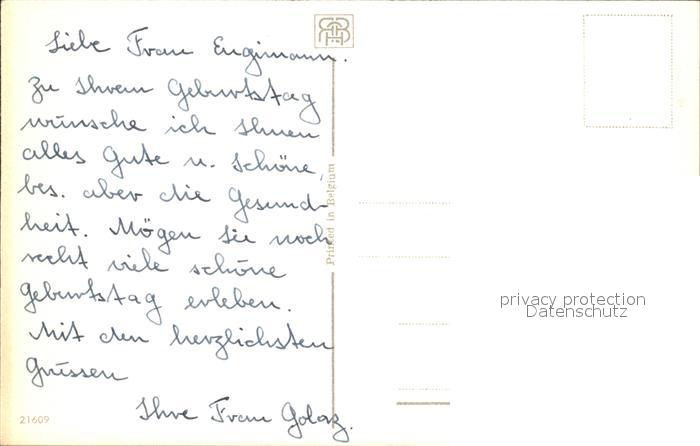 Liebe Frau Engimann.
Zu Ihrem Geburtstag
wünsche ich Ihnen
alles Gute u. Schöne,
bes. aber die Gesund-
heit. Mögen Sie noch
recht viele schöne
Geburtstag erleben.
Mit den herzlichsten
Grüssen
Ihre Frau Golaz.
21609
Printed in Belgium
privacy protection
Datenschutz